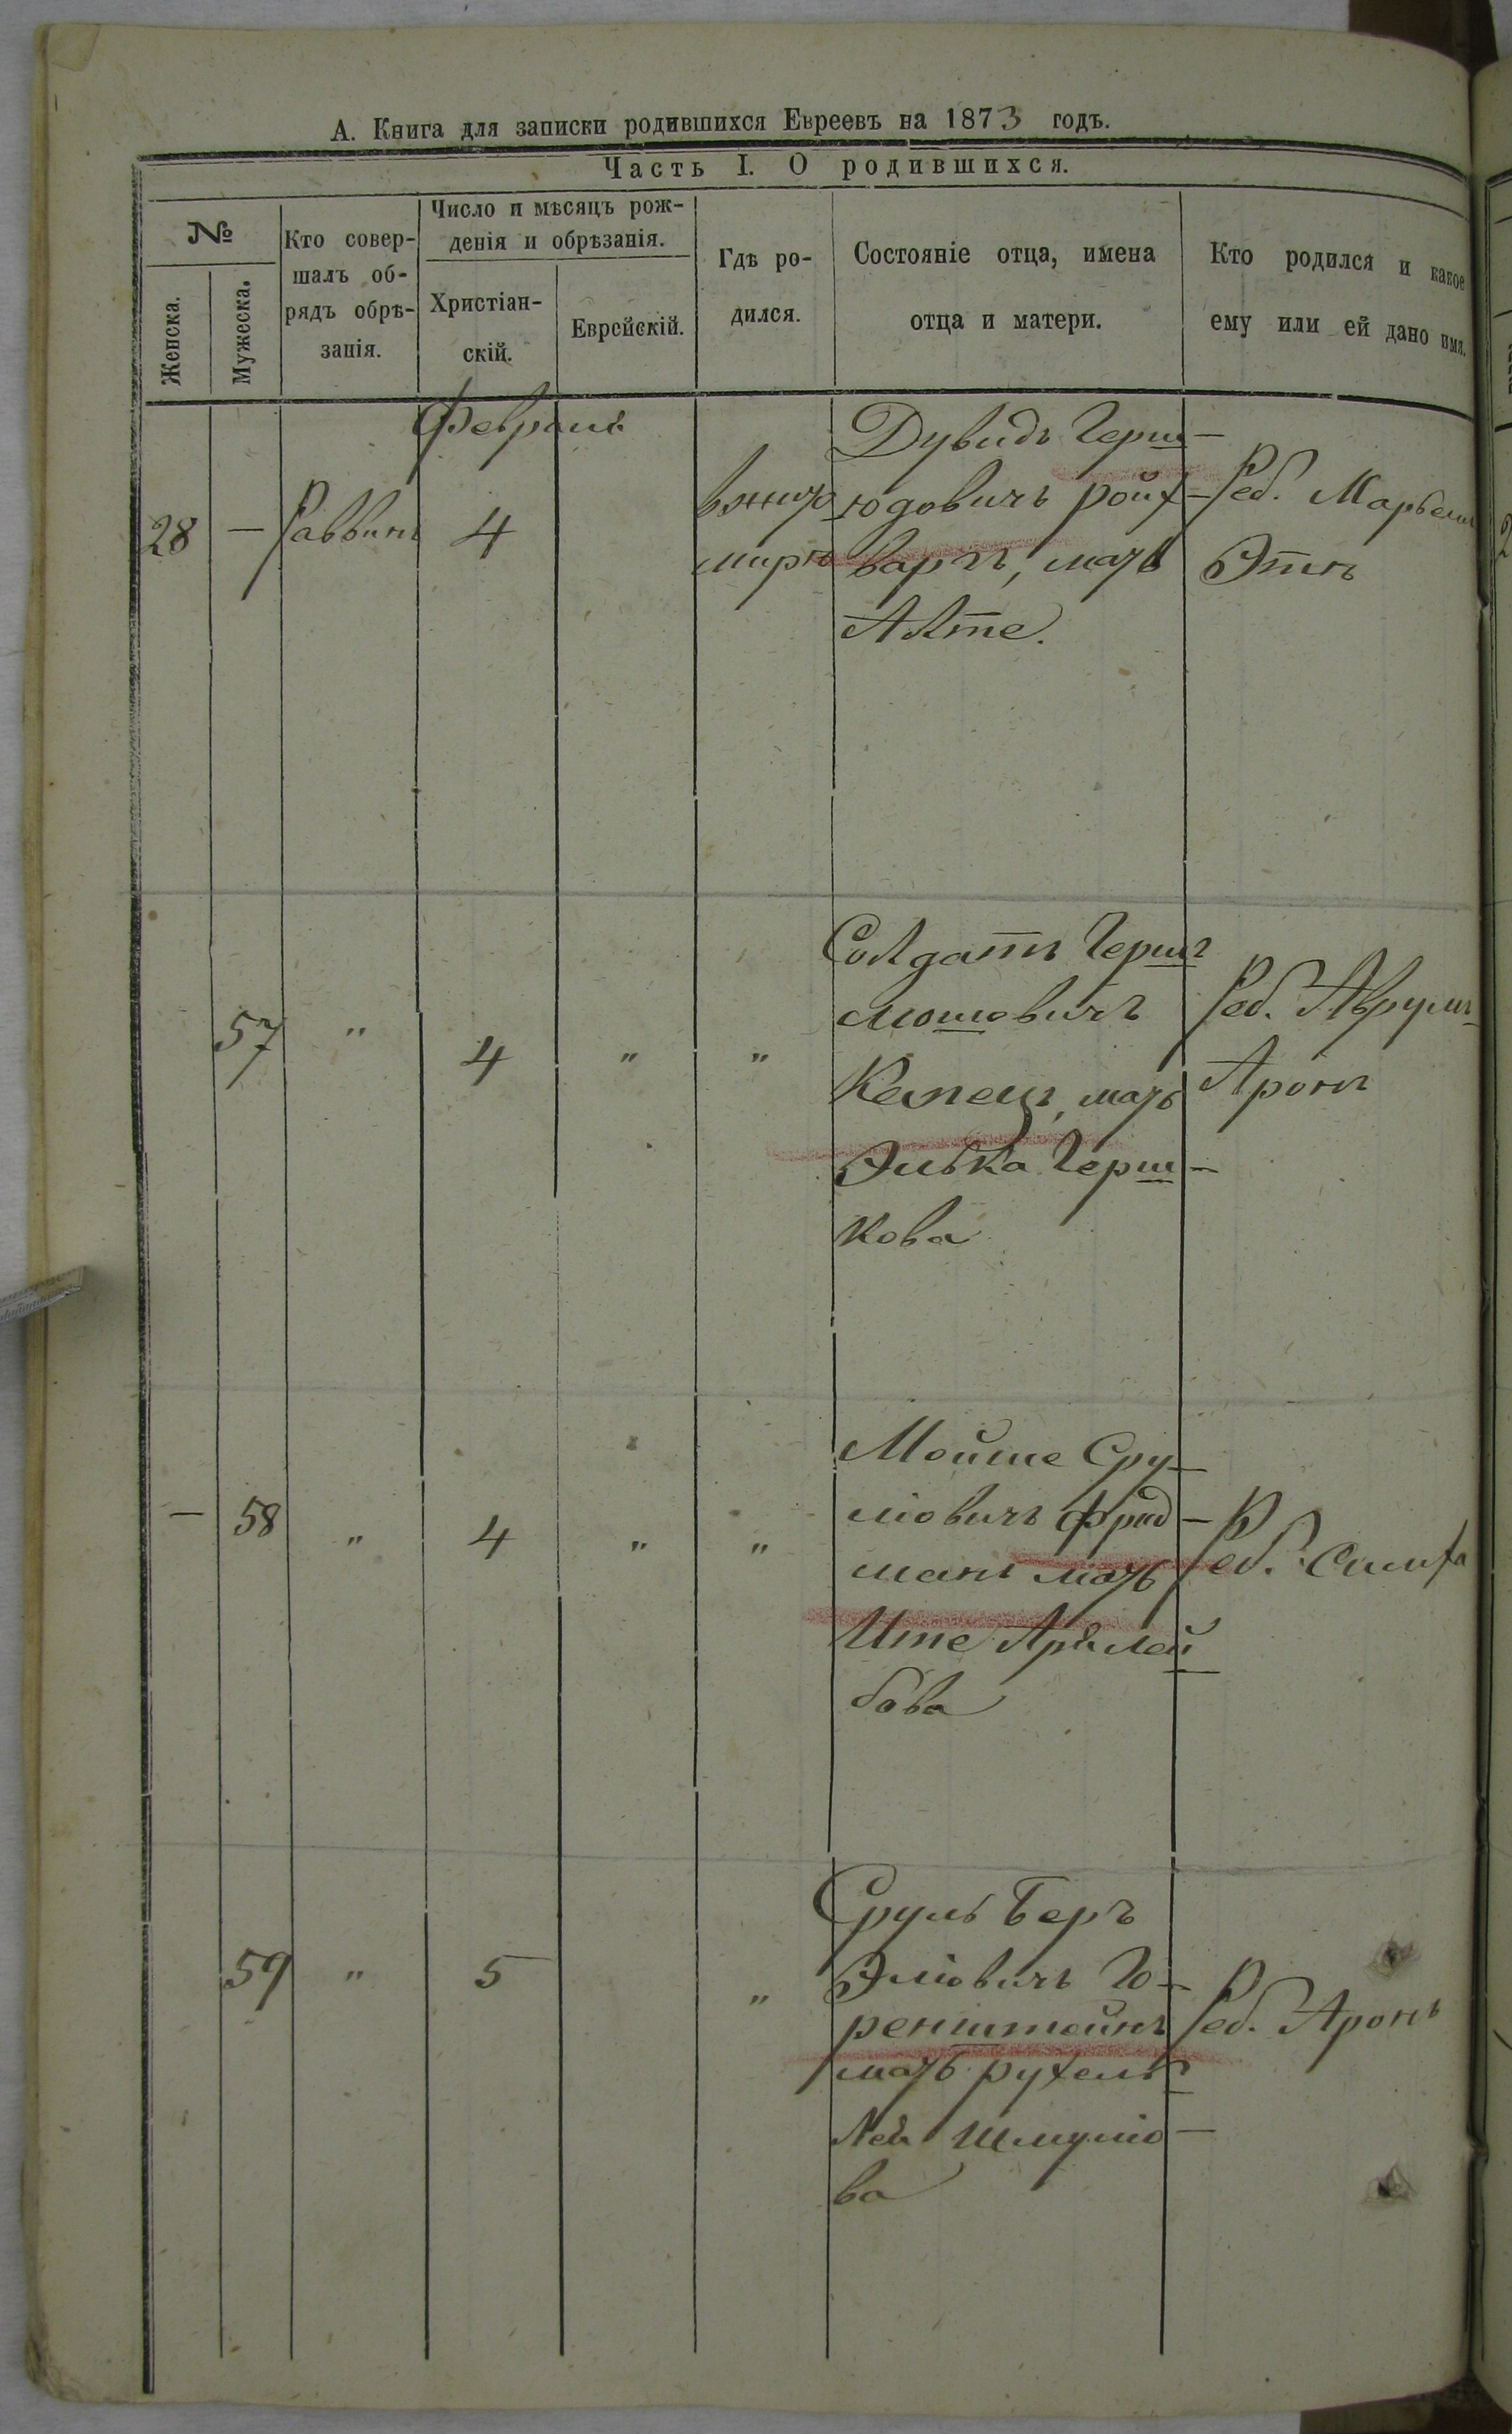 А. Книга для записки родившихся Евреевъ на 1873 годъ.
Часть I. О родившихся.
№
Женска.
Мужеска.
Кто совер-
шалъ об-
рядъ обрѣ-
занія.
Число и мѣсяцъ рож-
денія и обрѣзанія.
Христіан-
скій.
Еврейскій.
Гдѣ ро-
дился.
Состояніе отца, имена
отца и матери.
Кто родился и какое
ему или ей дано имя.
Февраля
28 — Раввинъ 4
вжито
мирѣ
Дувидъ Герш-
юдовичъ ройх-
варгъ, мать
Алте.
Реб. Марьемъ
Этть
57 " 4 " "
Солдатъ Гершъ
мошовичъ
Капецъ, мать
Элька Герш-
кова
Реб. Аврумъ
Аронъ
— 58 " 4 " "
Мойше Сру-
ліовичъ фрид-
манъ мать
Ите Арвлей-
бова
Реб. Симха
59 " 5 "
Сруль Беръ
Эліовичъ Го-
ренштейнъ
мать рухель
Лея Шмуліо-
ва
Реб. Аронъ